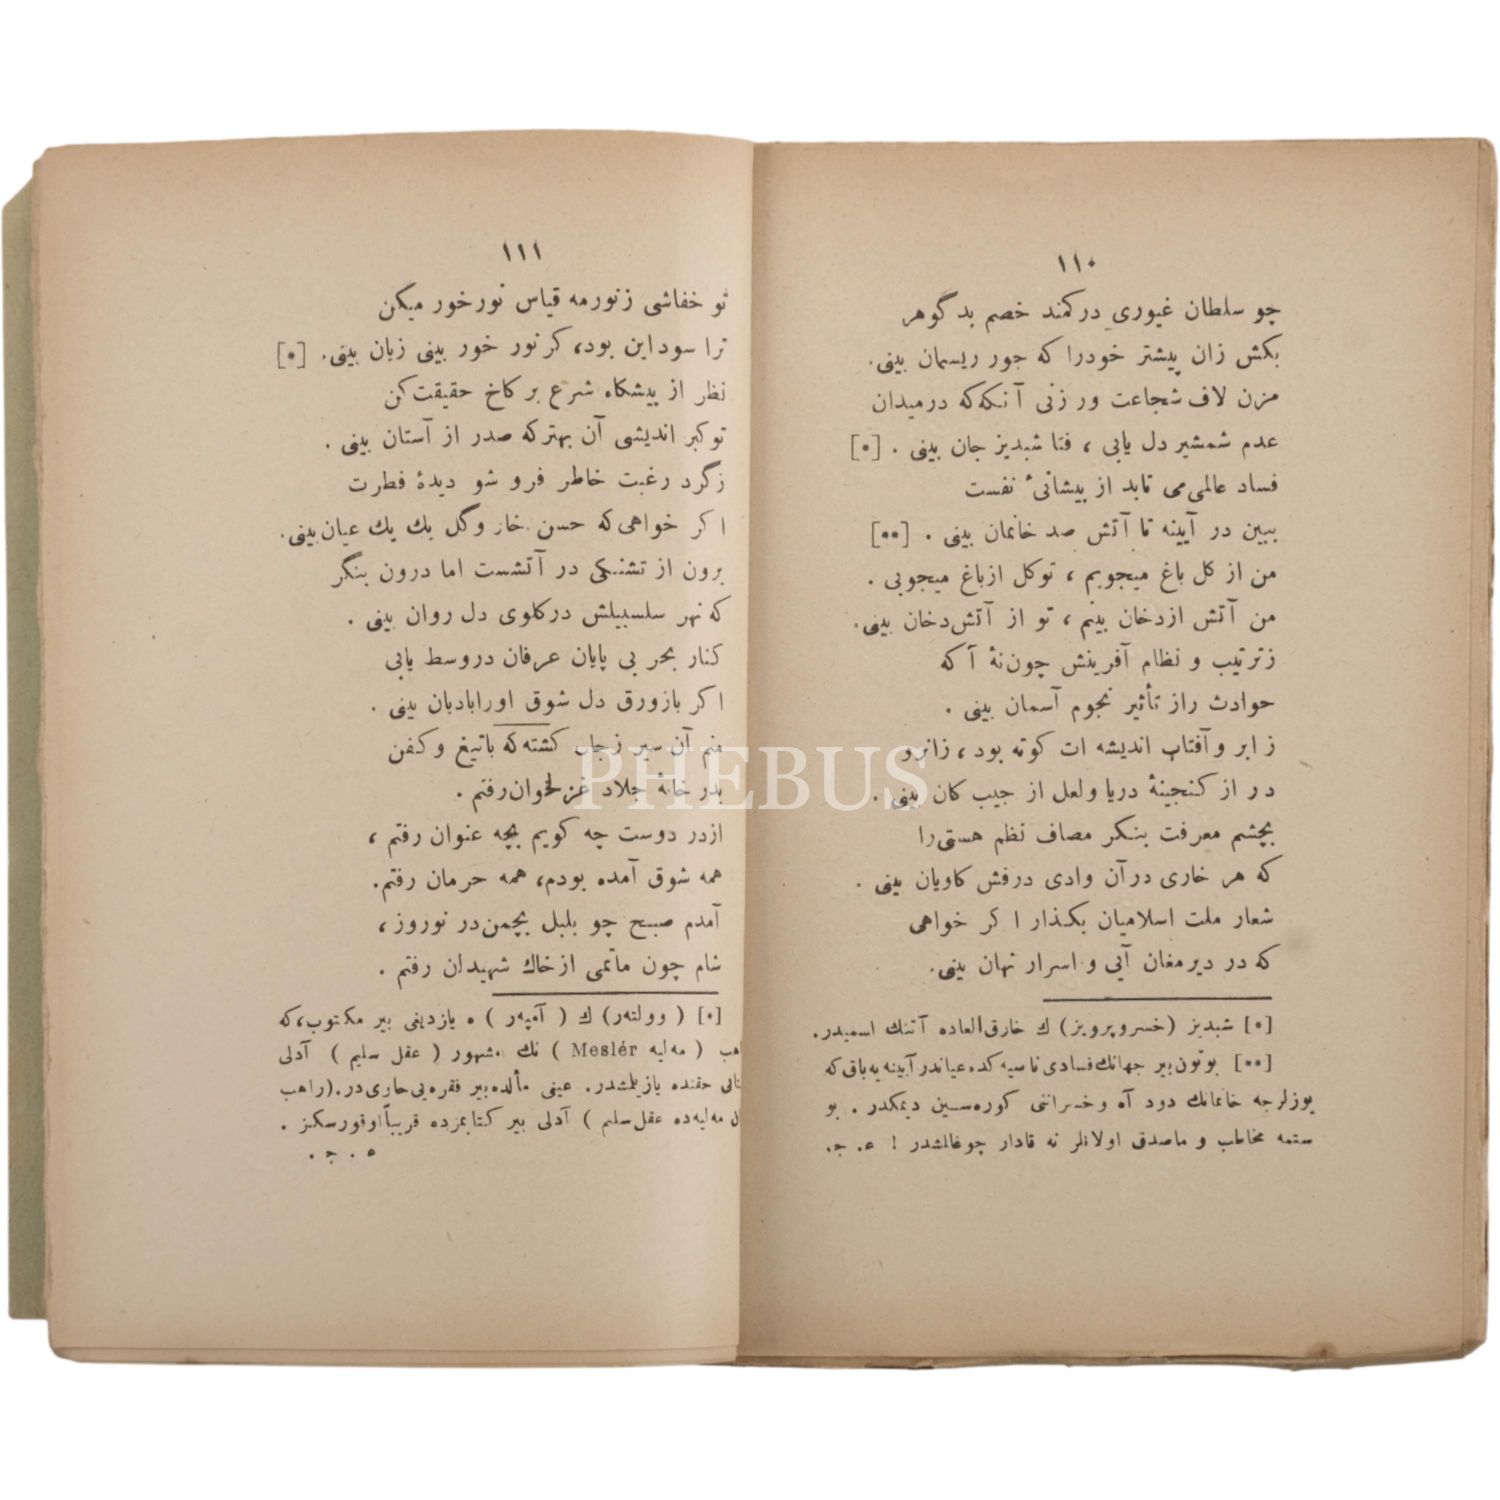 ١١٠
چو سلطان غیوری درکمند خصم بد گوهر
بکش زان پیشتر خودرا که جور ریسمان بینی.
مزن لاف شجاعت ور زنی آنکه‌که درمیدان
عدم شمشیر دل یابی ، فنا شبدیز جان بینی . [*]
فساد عالمی‌می تابد از پیشانیٔ نفست
ببین در آیینه تا آتش صد خانمان بینی . [**]
من از کل باغ میجویم ، توکل ازباغ میجویی .
من آتش ازدخان بینم ، تو از آتش‌دخان بینی.
زترتیب و نظام آفرینش چون‌نهٔ آ که
حوادث راز تأثیر نجوم آسمان بینی .
ز ابر وآفتاب اندیشه ات کوته بود ، زانرو
در از کنجینهٔ دریا ولعل از جیب کان بینی .
بچشم معرفت بنکر مصاف نظم هستی‌را
که هر خاری درآن وادی درفش کاویان بینی .
شعار ملت اسلامیان بکذار ا کر خواهی
که در دیرمغان آیی و اسرار نهان بینی.
[*] شبدیز (خسروپرویز) ك خارق‌العاده آتنك اسمیدر.
[**] بوتون‌بیر جهانك‌فسادی ناصیه كده‌عیاندر آیینه یه‌باق‌كه
یوزلرجه خانمانك دود آه وخسراننی كوره‌سین دیمكدر . بو
ستمه مخاطب و ماصدق اولانلر نه قادار چوغالمشدر ! ع. ج.
١١١
تو خفاشی زنورمه قیاس نورخور میکن
ترا سوداین بود، کرنور خور بینی زیان بینی. [*]
نظر از پیشکاه شرع برکاخ حقیقت‌کن
توکبر اندیشی آن بهترکه صدر از آستان بینی .
زگرد رغبت خاطر فرو شو دیدهٔ فطرت
ا کر خواهی‌که حسن خار وگل یك یك عیان‌بینی.
برون از تشنکی در آتشست اما درون بنگر
که نهر سلسبیلش درکلوی دل روان بینی .
کنار بحر بی پایان عرفان دروسط یابی
ا کر بازورق دل شوق اورابادبان بینی .
منم آن سیر زجان کشته‌که باتیغ وکفن
بدر خانهٔ جلاد غزلخوان‌رفتم .
ازدر دوست چه کویم بچه عنوان رفتم ،
همه شوق آمده بودم، همه حرمان رفتم.
آمدم صبح چو بلبل بچمن‌در نوروز ،
شام چون ماتمی ازخاك شهیدان رفتم .
[*] (وولته‌ر) ك (آمپه‌ر) ه یازدیغی بیر مکتوب، که
اهب (مه‌لیه Meslér) نك مشهور (عقل سلیم) آدلی
حقنده یازیلمشدر. عینی مآلده‌بیر فقره‌یی‌حاوی‌در. (راهب
مه‌لیه‌ده عقل‌سلیم) آدلی بیر کتابمزده قریباً اوقورسکز .
ع . ج .
PHEBUS